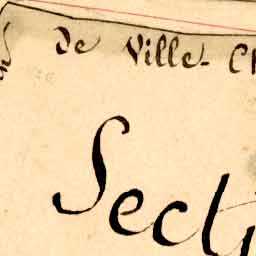 De Ville-Ch
Secti